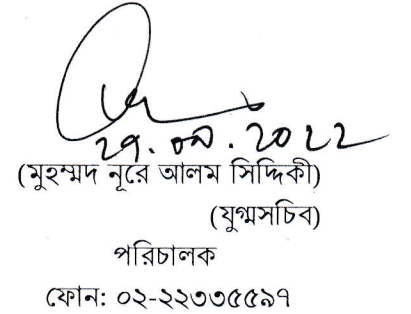 ২৭.০৯.২০২২
(মুহম্মদ নূরে আলম সিদ্দিকী)
(যুগ্মসচিব)
পরিচালক
ফোন: ০২-২২৩৩৫৫৯৭